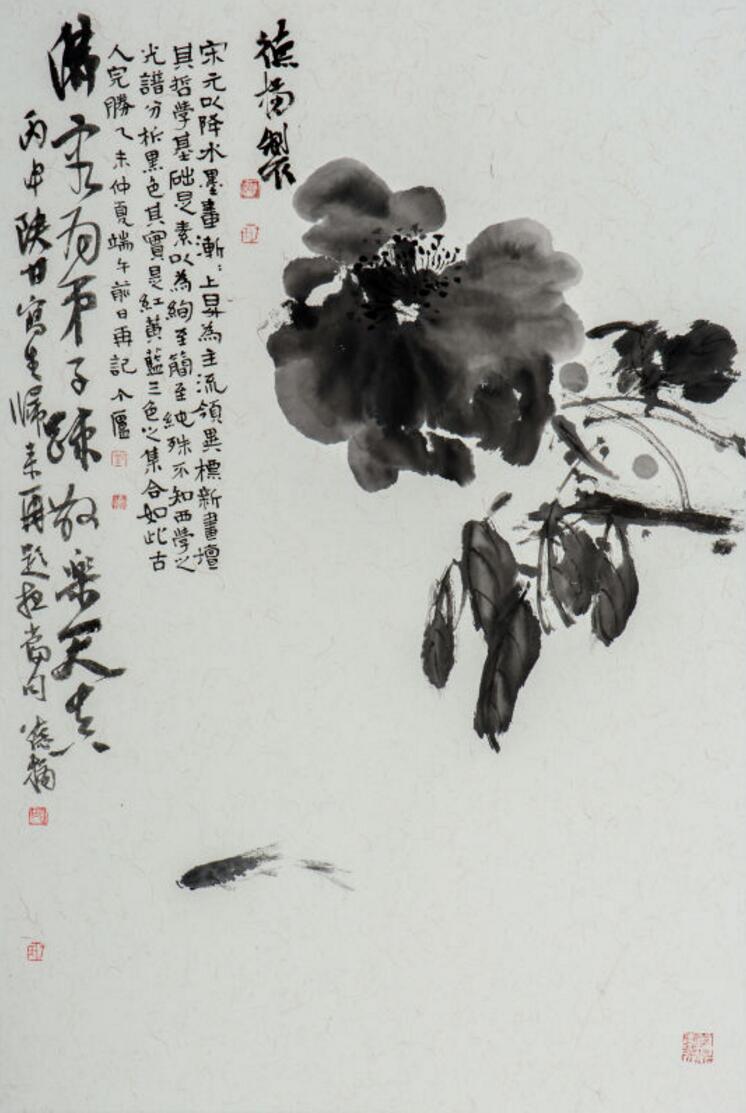 製
宋元以降水墨畫漸：上昇為主流領異標新畫壇
其哲學基礎是素以為絢至簡至純殊不知西學之
光譜分析黑色其實是紅黄藍三色之集合如此古
人完勝乙未仲夏端午前日再記 个廬
為弟子疎散樂天真
丙申陝甘寫生歸来再題句